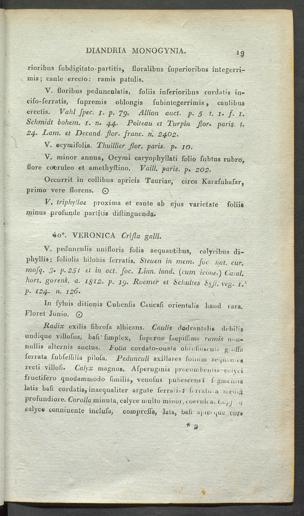 DIANDRIA MONOGYNIA. 19
rioribus subdigitato-partitis, floralibus superioribus integerri-
mis; caule erecto: ramis patulis.
V. floribus pedunculatis, foliis inferioribus cordatis in-
ciso-serratis, supremis oblongis subintegerrimis, caulibus
erectis. Vahl spec. 1. p. 79. Allion auct. p. 5 t. 1. f. 1.
Schmidt bohem. 1. n. 44. Poiteau et Turpin flor. paris. t.
24. Lam. et Decand flor. franc. n. 2402.
V. ocymifolia. Thuillier flor. paris. p. 10.
V. minor annua, Ocymi caryophyllati folio subtus rubro,
flore coeruleo et amethystino. Vaill. paris. p. 202.
Occurrit in collibus apricis Tauriae, circa Karasubasar,
primo vere florens. ☉
V. triphyllae proxima et ante ab ejus varietate foliis
minus profunde partitis distinguenda.
40*. VERONICA Crista galli.
V. pedunculis unifloris folia aequantibus, calycibus di-
phyllis; foliolis bilobis serratis. Steven in mem. soc nat. cur.
mosq. 3. p.251 et in act. soc. Linn. lond. (cum icone.) Catal.
hort. gorenk. a. 1812. p. 19. Roemer et Schultes syst. veg. 1.
p. 124. n. 126.
In sylvis ditionis Cubensis Caucasi orientalis haud rara.
Floret Junio. ☉
Radix exilis fibrosa albicans. Caulis dodrantalis debilis
undique villosus, basi simplex, superne saepissime ramis non-
nullis alternis auctus. Folia cordato-ovata obtusiuscula grosse
serrata subsessilia pilosa. Pedunculi axillares folium aequantes
recti villosi. Calyx magnus, Asperuginis procumbentis calyci
fructifero quodammodo similis, venosus pubescens:
latis basi cordatis, inaequaliter argute serratis:
profundiore. Corolla minuta, calyce multo minor, coerulea.
calyce connivente inclusa, compressa, lata, basi apiceque cor-
* 2